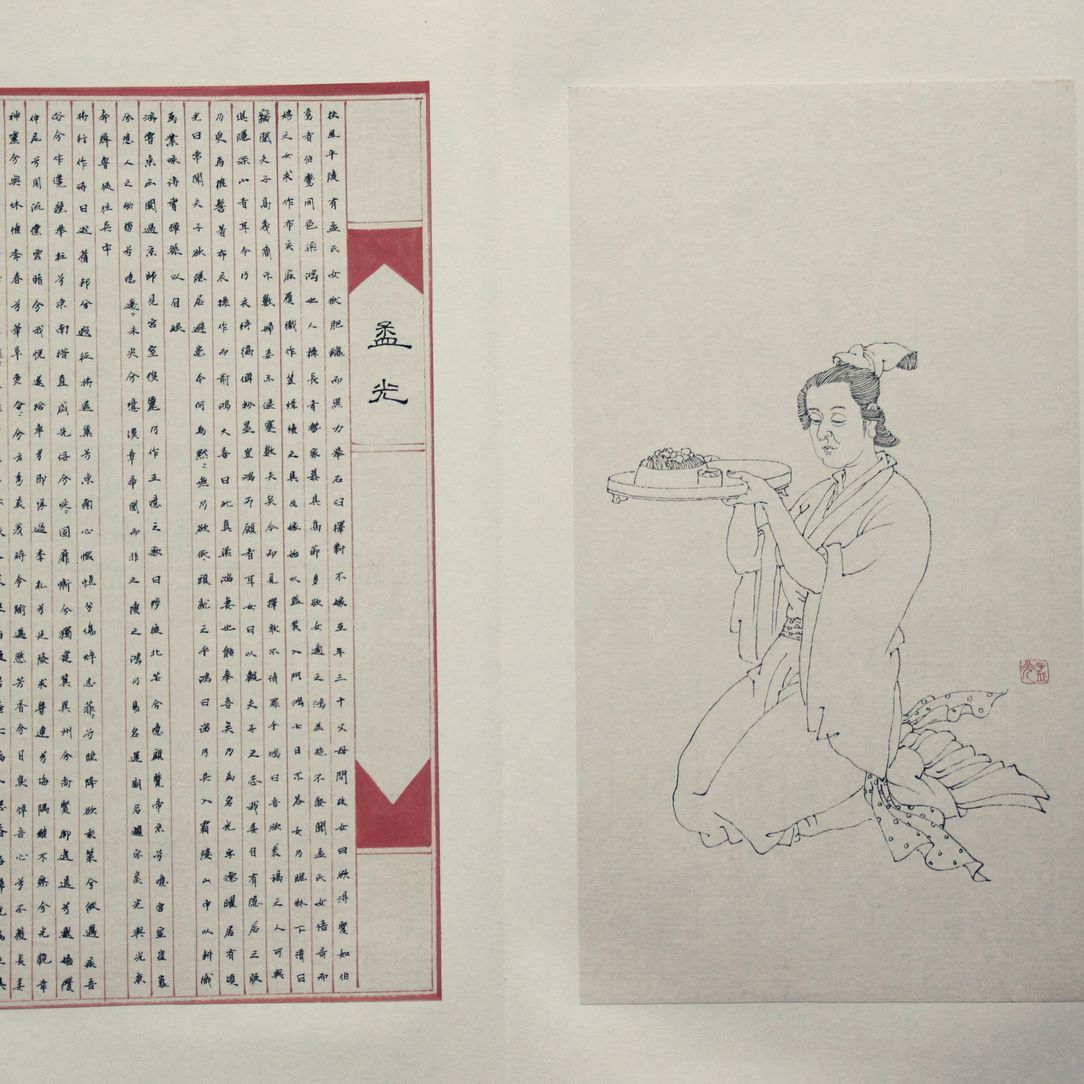 孟光
扶風平陵有孟氏女狀肥醜而黑力舉石臼擇對不嫁至年三十父母問故女曰欲得賢如伯
鸞者伯鸞同邑梁鴻也人擅長者勢家慕其高節多欲女適之鴻並絕不娶聞孟氏女語奇而
娉之女求作布衣麻屨織作筐緝績之具及嫁始以裝入門鴻七日不答女乃跪牀下請曰
竊聞夫子高義簡斥數婦妾亦偃蹇數夫矣今而見擇敢不請罪乎鴻曰吾欲裘褐之人可與
俱隱深山者耳今乃衣綺縞傅粉墨豈鴻所願者耳女曰以觀夫子之志我妾自有隱居之服
乃更為椎髻著布衣操作而前鴻大喜曰此真梁鴻妻也能奉吾矣乃為名光字德曜居有頃
光曰常聞夫子欲隱居避患今何為默〻無乃欲低頭就之乎鴻曰諾乃共入霸陵山中以耕織
為業咏詩書彈琴以自娛
鴻嘗東出關過京師見宮室侈麗乃作五噫之歌曰陟彼北芒兮噫顧覽帝京兮噫宮室崔嵬
兮噫人之劬勞兮噫遼〻未央兮噫漢章帝聞而非之之鴻乃易名運期名耀字侯光與光東
奔齊魯後往吳中
將行作詩曰逝舊邦兮遐征將遙集兮東南心惙怛兮傷悴志菲〻兮陞降欲乘策兮縱邁疾吾
俗兮作讒競舉枉兮東南措直咸先佞兮唌〻固靡慚兮獨建冀異州兮尚賢聊逍遙兮遨嬉纘
仲尼兮周流儻雲睹兮我悅遂捨車兮即浮過季札兮延陵求魯連兮海隅雖不察兮光貌幸
神靈兮與休惟季春兮華阜麥含〻兮方秀哀茂時兮逾邁愍芳香兮日臭悼吾心兮不獲長委